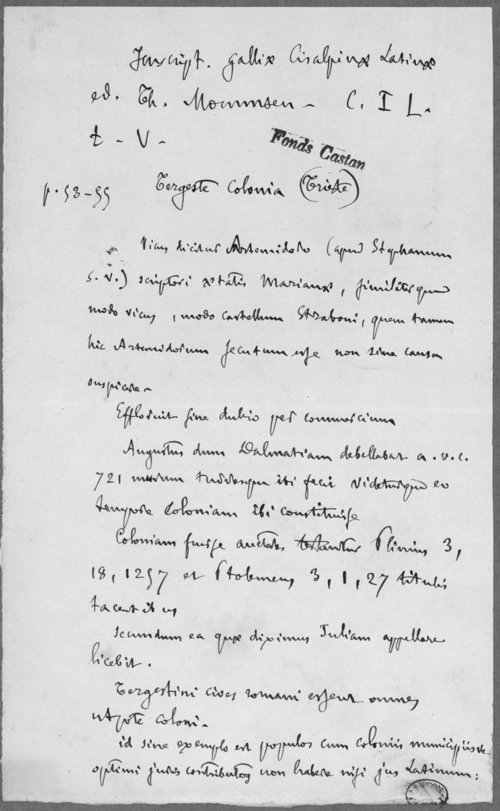 Inscript. galliæ Cisalpinæ Latinæ
ed. Th. Mommsen - C. I L.
t - V -
Fonds Castan
p. 53-55 Tergeste Colonia (Trieste)
Vicus dicitur Artemidoro (apud Stephanum
s. v.) scriptori ætatis Marianæ, similiterque
modo vicus, modo castellum Straboni, quem tamen
hic Artemidorum secutum esse non sine causa
suspicere -
Effloruit sine dubio per commercium
Augustus dum Dalmatiam debellabat a. v. c.
721 murum turresque ibi fecit videturque eo
tempore Coloniam ibi constituisse
Coloniam fuisse auctores testantur Plinius 3,
18, 1257 et Ptolemeus 3, 1, 27 titulis
tacentibus
secundum ea quæ diximus Iuliam appellare
licebit.
Tergestini cives romani essent omnes
utpote coloni -
id sine exemplo est populos cum coloniis municipiisve
optimi juris contributos non habere nisi jus Latinum: